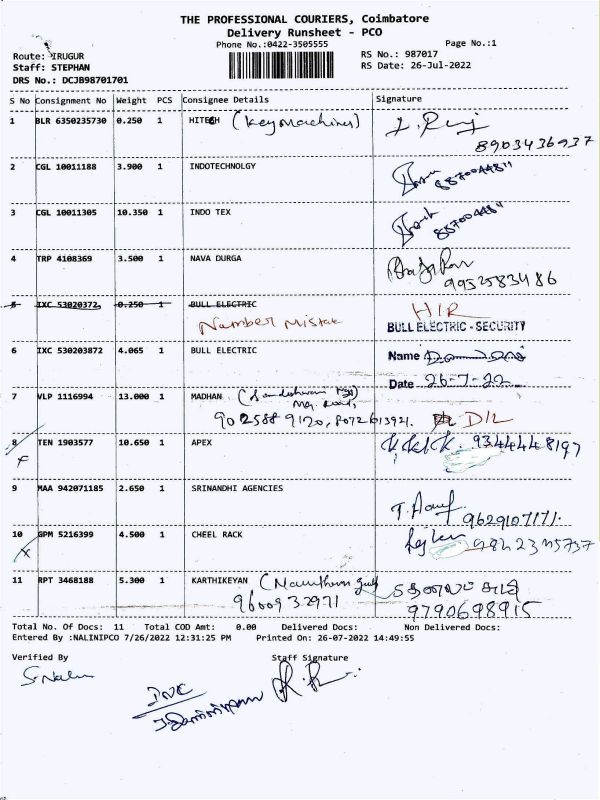 THE PROFESSIONAL COURIERS, Coimbatore
Delivery Runsheet - PCO
Phone No.:0422-3505555 Page No.:1
Route: IRUGUR RS No.: 987017
Staff: STEPHAN RS Date: 26-Jul-2022
DRS No.: DCJB98701701
S No Consignment No Weight PCS Consignee Details Signature
1 BLR 6350235730 0.250 1 HITESH (Key Machines)
8903436937
2 CGL 10011188 3.900 1 INDOTECHNOLGY 88700448"
3 CGL 10011305 10.350 1 INDO TEX 88700448"
4 TRP 4108369 3.500 1 NAVA DURGA
9952583486
5 IXC 53020372 0.250 1 BULL ELECTRIC H/R
Number Mistak BULL ELECTRIC - SECURITY
6 IXC 530203872 4.065 1 BULL ELECTRIC Name
Date 26-7-22
7 VLP 1116994 13.000 1 MADHAN
902588 9120, 8072613921. D/L
8 TEN 1903577 10.650 1 APEX 9344448197
9 MAA 942071185 2.650 1 SRINANDHI AGENCIES
9629107171.
10 GPM 5216399 4.500 1 CHEEL RACK
x
11 RPT 3468188 5.300 1 KARTHIKEYAN
9600932971 9790698915
Total No. Of Docs: 11 Total COD Amt: 0.00 Delivered Docs: Non Delivered Docs:
Entered By :NALINIPCO 7/26/2022 12:31:25 PM Printed On: 26-07-2022 14:49:55
Verified By Staff Signature